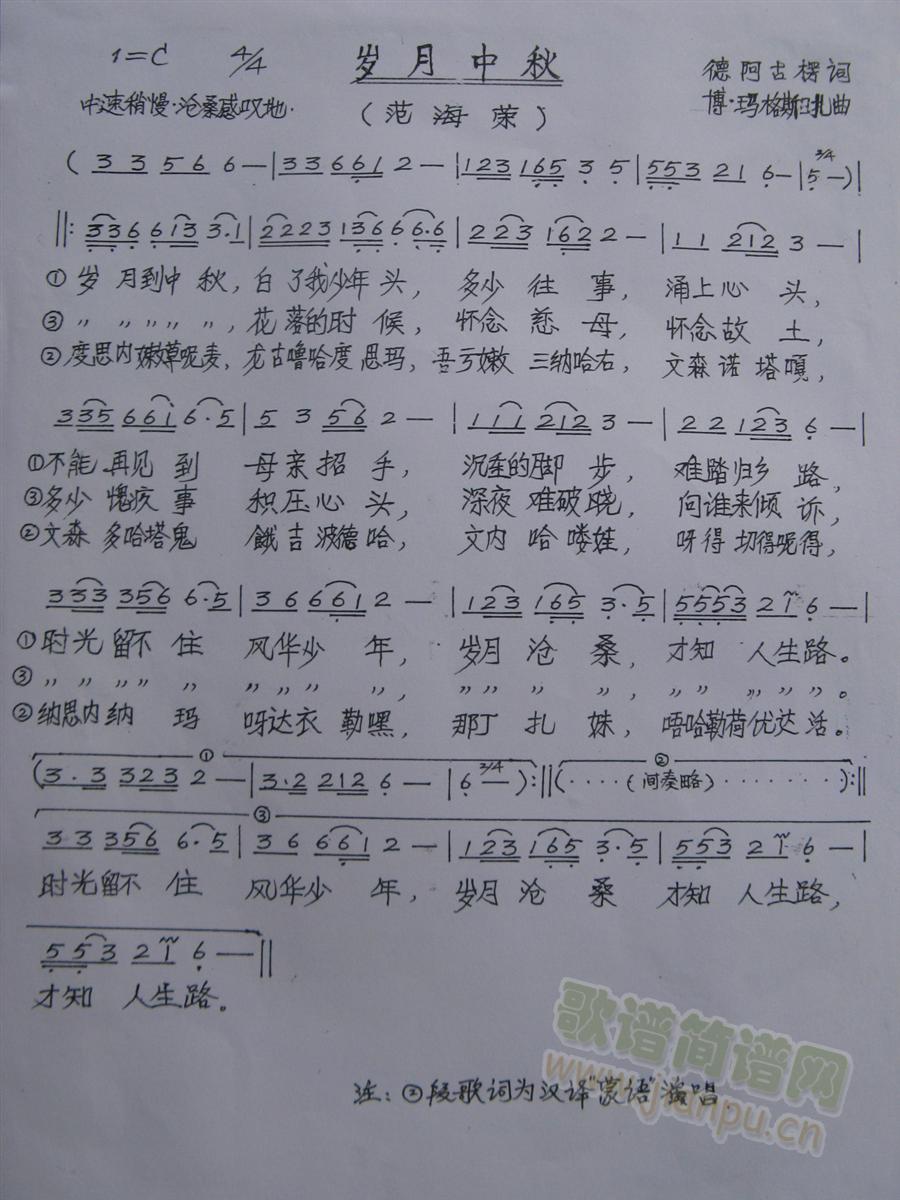 1=C 4/4 岁月中秋 德阿古楞词
中速稍慢·沧桑感叹地· (范海荣) 博·玛格斯尔扎曲
( 3 3 5 6 6 — | 3 3 6 6 1 2 — | 1 2 3 1 6 5 3 5 | 5 5 3 2 1 6 — | 3/4 5 — ) |
‖: 3 3 6 6 1 3 3·1 | 2 2 2 3 1 3 6 6 6·6 | 2 2 3 1 6 2 2 — | 1 1 2 1 2 3 — |
① 岁月到中秋，白了我少年头，多少往事，涌上心头，
③ 〃 〃 〃 〃 〃，花落的时候，怀念慈母，怀念故土，
② 度思内嫩蓴呢麦，龙古噜哈度思玛，吾亏嫩三纳哈右，文森诺塔嘎，
3 3 5 6 6 i 6·5 | 5 3 5 6 2 — | 1 1 1 2 1 2 3 — | 2 2 1 2 3 6 — |
①不能再见到母亲招手，沉重的脚步，难踏归乡路，
③多少愧疚事积压心头，深夜难破晓，问谁来倾诉，
②文森多哈塔鬼饿吉波德哈，文内哈喽娃，呀得切得呢得，
3 3 3 3 5 6 6·5 | 3 6 6 6 1 2 — | 1 2 3 1 6 5 3·5 | 5 5 5 3 2 1 6 — |
① 时光留不住风华少年，岁月沧桑，才知人生路。
③ 〃 〃 〃 〃 〃 〃 〃 〃 〃，〃 〃 〃 〃，〃 〃 〃 〃 〃。
② 纳思内纳玛呀达衣勒嘿，那丁扎妹，唔哈勒荷优达活。
① ②
( 3·3 3 2 3 2 — | 3·2 2 1 2 6 — | 3/4 6 — ) :‖ ( ····· (间奏略) ······ ) :‖
③
3 3 3 5 6 6·5 | 3 6 6 6 1 2 — | 1 2 3 1 6 5 3·5 | 5 5 3 2 1 6 — |
时光留不住风华少年，岁月沧桑才知人生路，
5 5 3 2 1 6 — ‖
才知人生路。
歌谱简谱网
www.jianpu.cn
注：②段歌词为汉译"蒙语"演唱